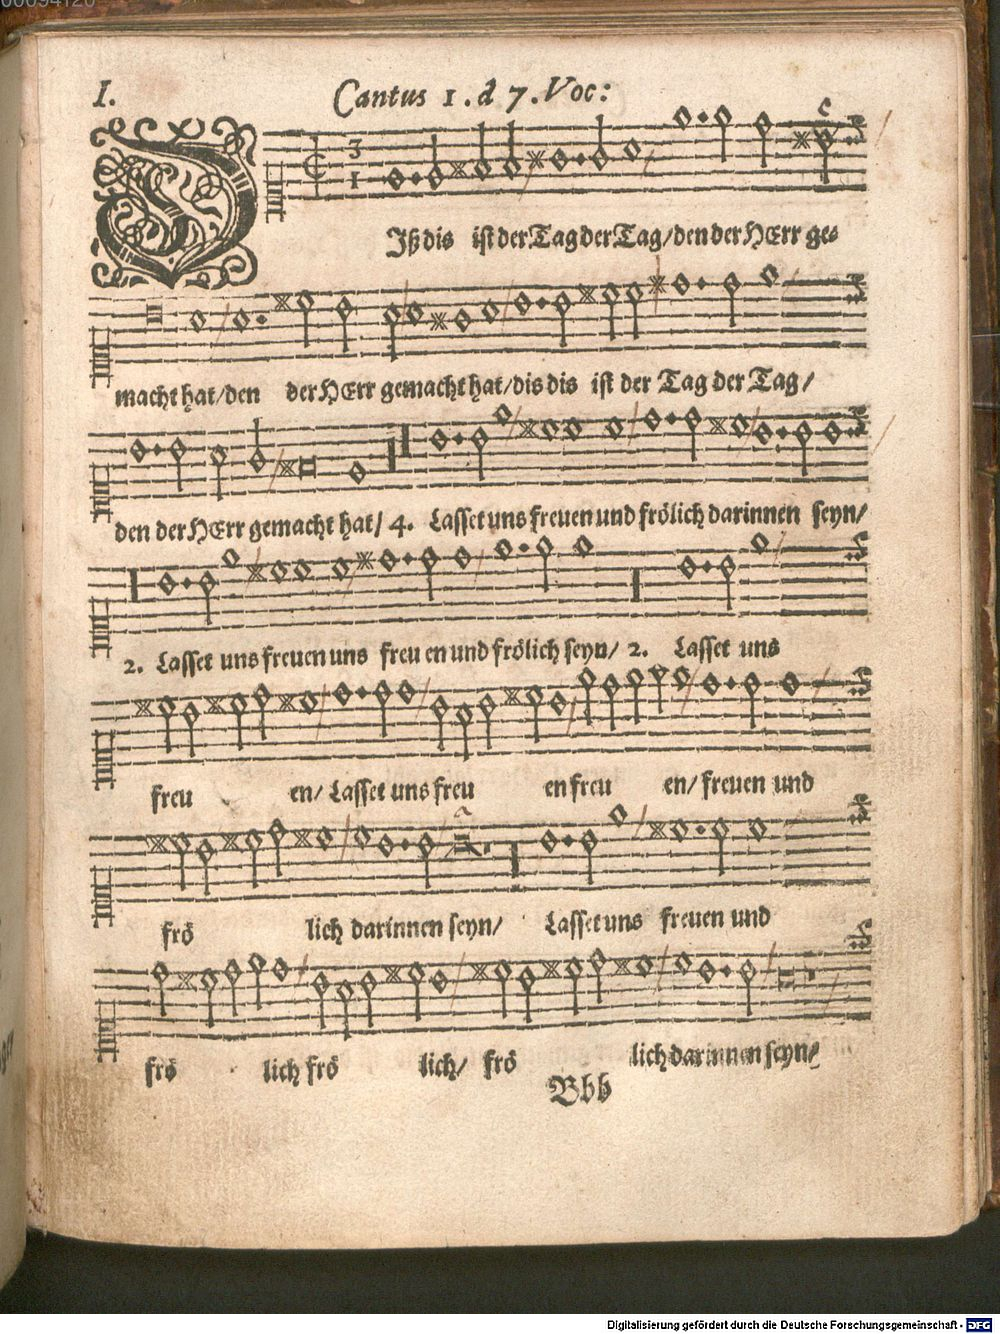 00094120
I. Cantus 1. à 7. Voc:
DIß dis ist der Tag der Tag/ den der HErr ge-
macht hat/ den der HErr gemacht hat/ dis dis ist der Tag der Tag/
den der HErr gemacht hat/ 4. Lasset uns freuen und frölich darinnen seyn/
2. Lasset uns freuen uns freu en und frölich seyn/ 2. Lasset uns
freu en/ Lasset uns freu en freu en/ freuen und
frö lich darinnen seyn/ Lasset uns freuen und
frö lich frö lich/ frö lich darinnen seyn/
Bbb
Digitalisierung gefördert durch die Deutsche Forschungsgemeinschaft - DFG